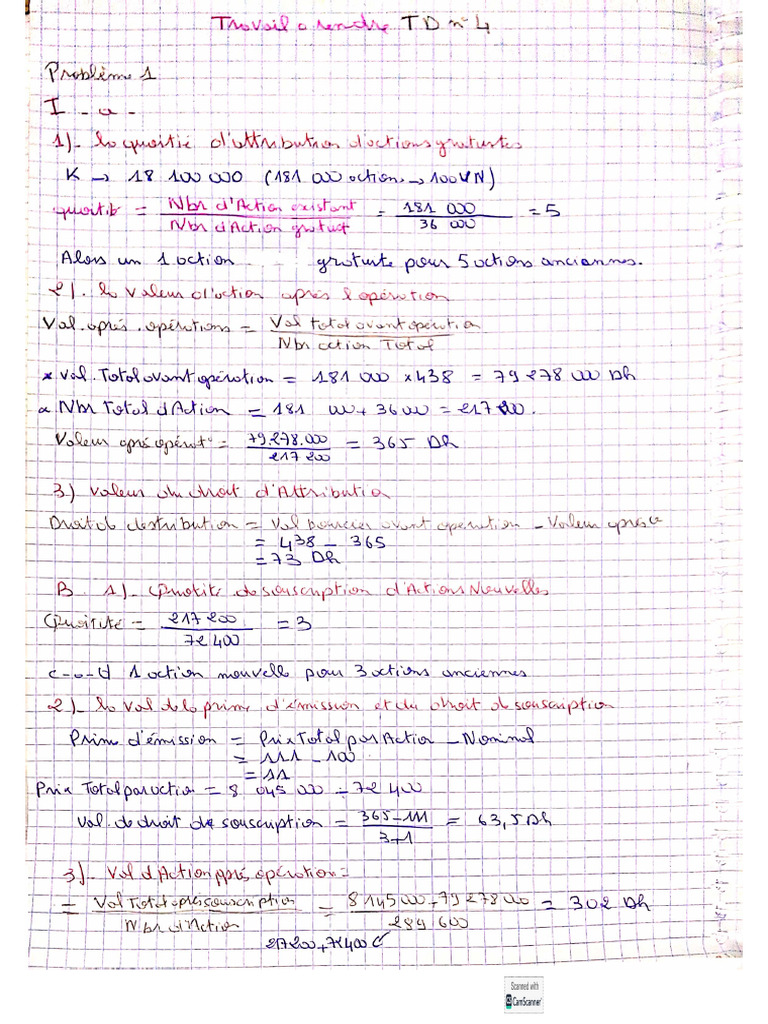 Travail a rendre TD n° 4
Problème 1
I - a -
1)- la quotité d'attribution d'actions gratuites
K → 18 100 000 (181 000 actions → 100 VN)
quotité = Nbr d'Action existant / Nbr d'Action gratuit = 181 000 / 36 000 = 5
Alors un 1 action gratuite pour 5 actions anciennes.
2)- la valeur d'action après l'opération
Val. après opérations = Val total avant opération / Nbr action Total
* Val. Total avant opération = 181 000 × 438 = 79 278 000 Dh
* Nbr Total d'Action = 181 000 + 36 000 = 217 200.
Valeur après opérat° = 79 278 000 / 217 200 = 365 Dh
3) Valeur du droit d'Attribution
Droit de distribution = Val boursier avant opération - Valeur après
= 438 - 365
= 73 Dh
B 1)- Quotité de souscription d'Actions Nouvelles
Quotité = 217 200 / 72 400 = 3
c-a-d 1 action nouvelle pour 3 actions anciennes
2)- la Val de la prime d'émission et du droit de souscription
Prime d'émission = Prix Total par Action - Nominal
= 111 - 100
= 11
Prix Total par action = 8 045 000 ÷ 72 400
Val. de droit de souscription = 365 - 111 / 3+1 = 63,5 Dh
3)- Val d'Action après opération =
= Val Total après souscription / Nbr d'Action = 8 145 000 + 79 278 000 / 289 600 = 302 Dh
217 200 + 72 400
Scanned with
CamScanner